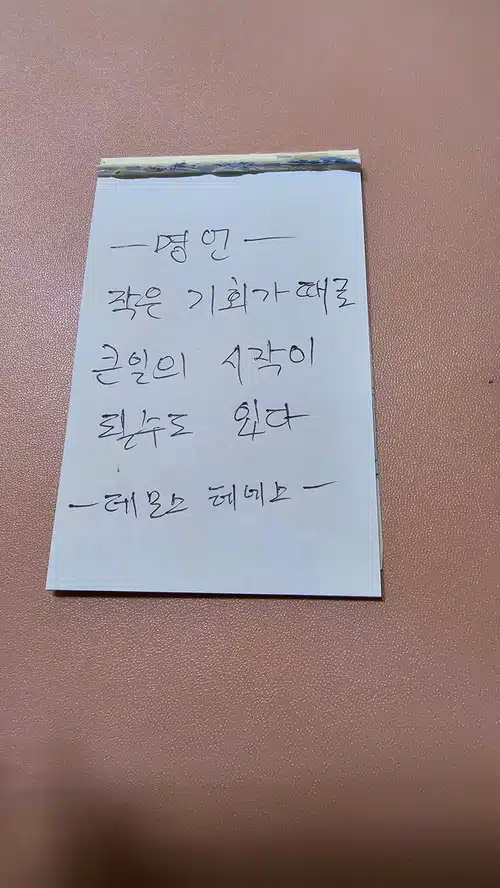 - 명언 -
작은 기회가 때로
큰일의 시작이
될수도 있다
- 데모스테네스 -